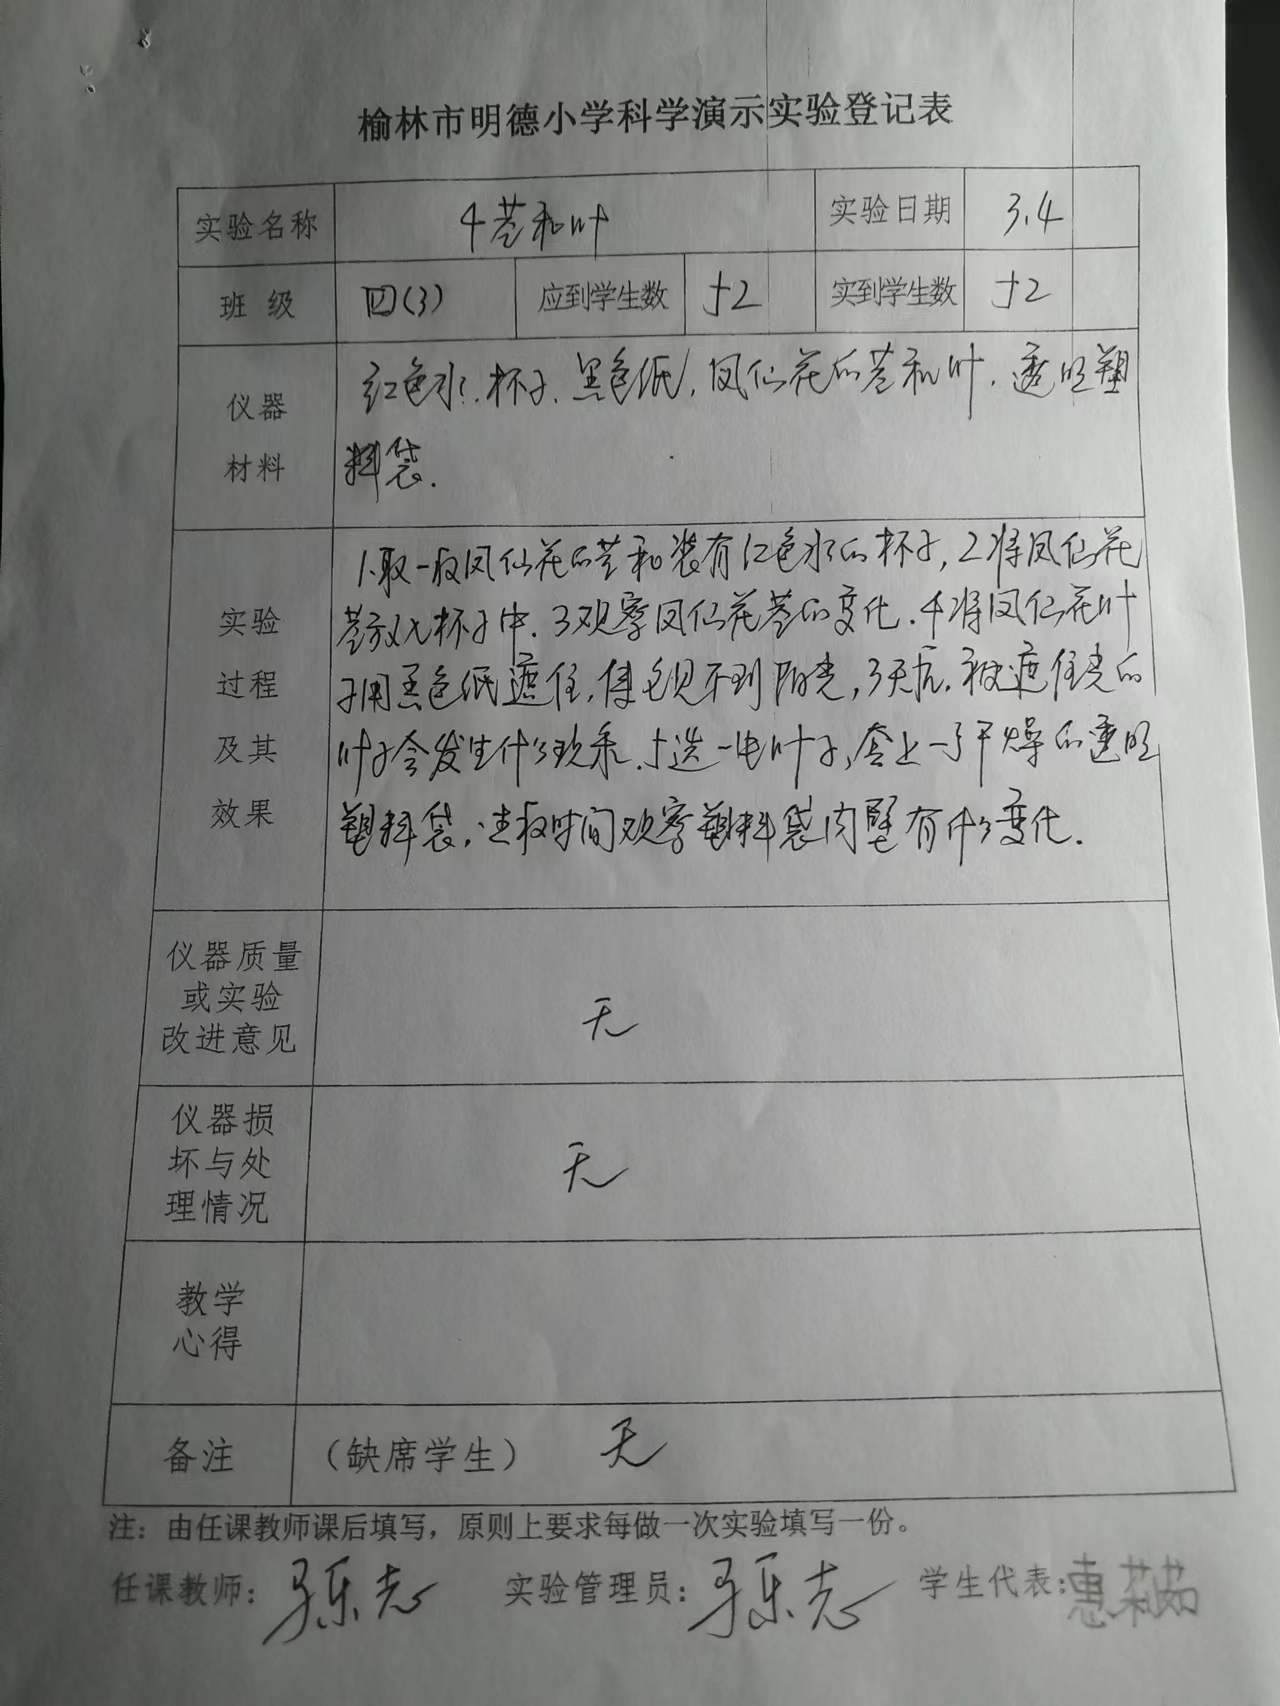 榆林市明德小学科学演示实验登记表
实验名称 4茎和叶 实验日期 3.4
班 级 四(3) 应到学生数 52 实到学生数 52
仪器 红色水.杯子.黑色纸,凤仙花的茎和叶.透明塑
材料 料袋.
1.取一段凤仙花的茎和装有红色水的杯子,2将凤仙花
实验 茎放入杯子中.3观察凤仙花茎的变化.4将凤仙花叶
过程 子用黑色纸遮住,使它见不到阳光,3天后.被遮住光的
及其 叶子会发生什么现象.5选一片叶子,套上一个干燥的透明
效果 塑料袋,过段时间观察塑料袋内壁有什么变化.
仪器质量
或实验 无
改进意见
仪器损
坏与处 无
理情况
教学
心得
备注 (缺席学生) 无
注：由任课教师课后填写，原则上要求每做一次实验填写一份。
任课教师: 实验管理员: 学生代表:惠